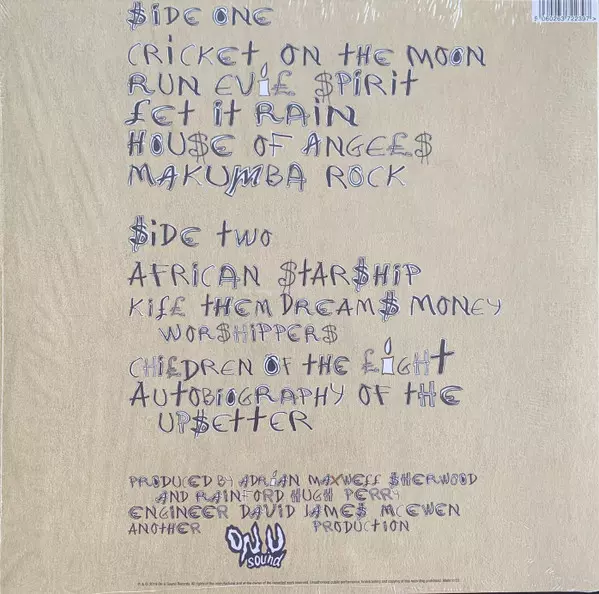 5 060263 722397 >
SIDE ONE
CRICKET ON THE MOON
RUN EVIL SPIRIT
LET IT RAIN
HOUSE OF ANGELS
MAKUMBA ROCK
SIDE TWO
AFRICAN STARSHIP
KILL THEM DREAMS MONEY
WORSHIPPERS
CHILDREN OF THE LIGHT
AUTOBIOGRAPHY OF THE
UPSETTER
PRODUCED BY ADRIAN MAXWELL SHERWOOD
AND RAINFORD HUGH PERRY
ENGINEER DAVID JAMES MCEWEN
ANOTHER ON U SOUND PRODUCTION